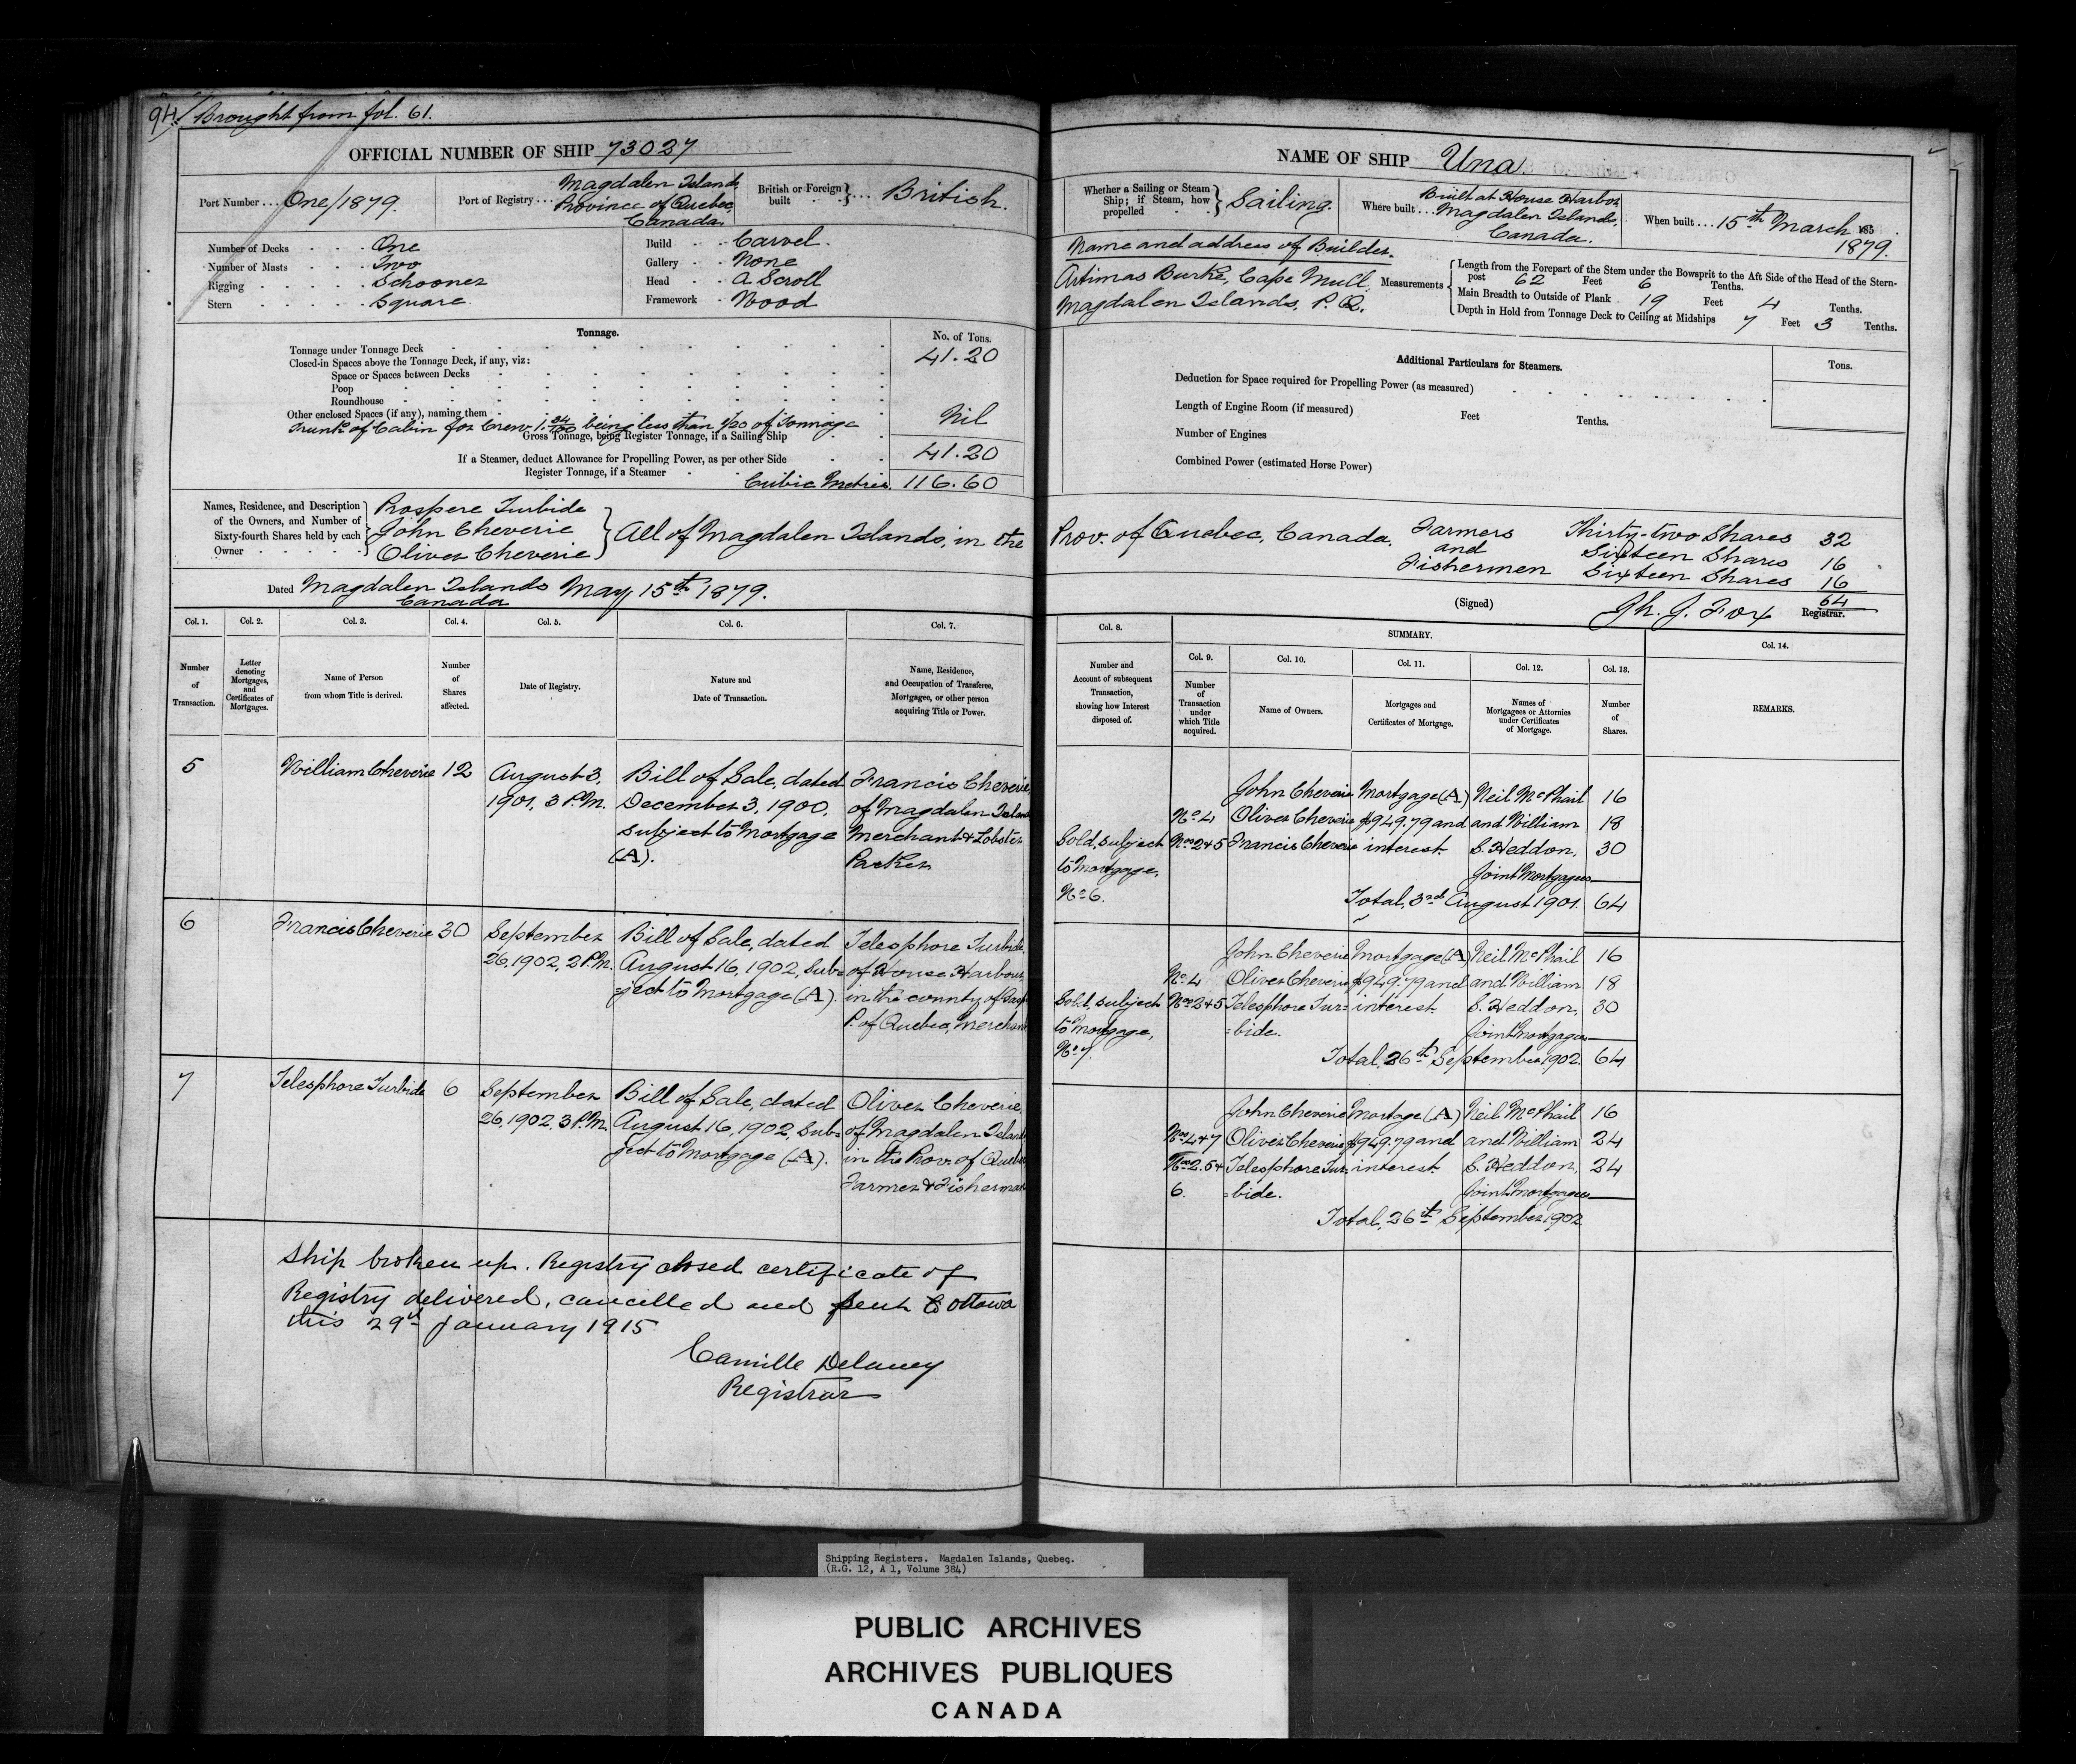 94/ Brought from fol. 61.
OFFICIAL NUMBER OF SHIP 73027
Port Number ... One/1879.
Port of Registry ... Magdalen Islands
Province of Quebec
Canada.
British or Foreign built } ... British.
Number of Decks One
Number of Masts Two
Rigging Schooner
Stern Square
Build Carvel.
Gallery None
Head A Scroll
Framework Wood
Tonnage.
No. of Tons.
Tonnage under Tonnage Deck 41.20
Closed-in Spaces above the Tonnage Deck, if any, viz:
Space or Spaces between Decks
Poop
Roundhouse
Other enclosed Spaces (if any), naming them
Trunk of Cabin for Crew 1.84/100 being less than 1/20 of Tonnage Nil
Gross Tonnage, being Register Tonnage, if a Sailing Ship 41.20
If a Steamer, deduct Allowance for Propelling Power, as per other Side
Register Tonnage, if a Steamer
Cubic Metres. 116.60
Names, Residence, and Description of the Owners, and Number of Sixty-fourth Shares held by each Owner
Prospere Turbide
John Cheverie
Oliver Cheverie
} All of Magdalen Islands, in the
Dated Magdalen Islands May 15th 1879.
Canada
Col. 1. Col. 2. Col. 3. Col. 4. Col. 5. Col. 6. Col. 7.
Number of Transaction.
Letter denoting Mortgages, and Certificates of Mortgages.
Name of Person from whom Title is derived.
Number of Shares affected.
Date of Registry.
Nature and Date of Transaction.
Name, Residence, and Occupation of Transferee, Mortgagee, or other person acquiring Title or Power.
5 William Cheverie 12 August 3, Bill of Sale, dated Francis Cheverie,
1901, 3 P.M. December 3, 1900, of Magdalen Island
subject to Mortgage Merchant & Lobster
(A). Packer
6 Francis Cheverie 30 September Bill of Sale, dated Telesphore Turbide,
26, 1902, 2 P.M. August 16, 1902, Sub= of House Harbour
=ject to Mortgage (A). in the county of Gasp
P. of Quebec, Merchant
7 Telesphore Turbide 6 September Bill of Sale, dated Oliver Cheverie,
26, 1902, 3 P.M. August 16, 1902, Sub= of Magdalen Island
ject to Mortgage (A). in the Prov. of Quebec
Farmer & Fisherman
Ship broken up. Registry closed certificate of
Registry delivered, cancelled and sent to Ottawa
this 29th January 1915
Camille Delaney
Registrar
NAME OF SHIP Una.
Whether a Sailing or Steam Ship; if Steam, how propelled } Sailing.
Where built ... Built at House Harbor,
Magdalen Islands,
Canada.
When built ... 15th March 185
1879.
Name and address of Builder.
Artimas Burke, Cape Mull,
Magdalen Islands, P.Q.
Measurements
Length from the Forepart of the Stem under the Bowsprit to the Aft Side of the Head of the Stern-
post 62 Feet 6 Tenths.
Main Breadth to Outside of Plank 19 Feet 4 Tenths.
Depth in Hold from Tonnage Deck to Ceiling at Midships 7 Feet 3 Tenths.
Additional Particulars for Steamers.
Tons.
Deduction for Space required for Propelling Power (as measured)
Length of Engine Room (if measured) Feet Tenths.
Number of Engines
Combined Power (estimated Horse Power)
Prov. of Quebec, Canada. Farmers Thirty-two Shares 32
and Sixteen Shares 16
Fishermen Sixteen Shares 16
64
(Signed) Jh. J. Fox Registrar.
Col. 8. SUMMARY. Col. 14.
Col. 9. Col. 10. Col. 11. Col. 12. Col. 13.
Number and Account of subsequent Transaction, showing how Interest disposed of.
Number of Transaction under which Title acquired.
Name of Owners.
Mortgages and Certificates of Mortgage.
Names of Mortgagees or Attornies under Certificates of Mortgage.
Number of Shares.
REMARKS.
John Cheverie Mortgage (A) Neil McPhail 16
No 4 Oliver Cheverie $949.79 and and William 18
Sold, subject Nos 2 & 5 Francis Cheverie interest. S. Heddon, 30
to Mortgage, Joint Mortgagees
No 6. Total, 3rd August 1901. 64
John Cheverie Mortgage (A) Neil McPhail 16
No. 4 Oliver Cheverie $949.79 and and William 18
Sold, subject Nos 2 & 5 Telesphore Tur= interest. S. Heddon, 30
to Mortgage, =bide. Joint Mortgagees
No 7. Total, 26th September 1902. 64
John Cheverie Mortage (A) Neil McPhail 16
Nos 4 & 7 Oliver Cheverie $949.79 and and William 24
Nos 2. 5 & Telesphore Tur- interest S. Heddon, 24
6. =bide. Joint Mortgagees
Total, 26th September 1902
Shipping Registers. Magdalen Islands, Quebec.
(R.G. 12, A 1, Volume 384)
PUBLIC ARCHIVES
ARCHIVES PUBLIQUES
CANADA